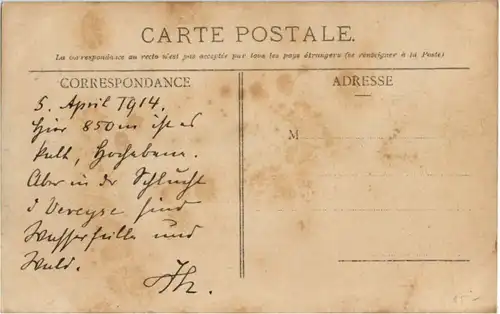 CARTE POSTALE.
La correspondance au recto n'est pas acceptée par tous les pays étrangers (se renseigner à la Poste)
CORRESPONDANCE
ADRESSE
5. April 1914.
Hier 850 m ist es
kalt, Hochebene.
Aber in der Schlucht
d Vereyse sind
Wasserfälle und
Wald.
Th.
M